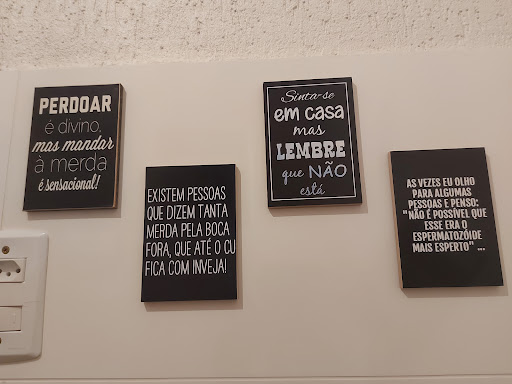 PERDOAR
é divino,
mas mandar
à merda
é sensacional!
EXISTEM PESSOAS
QUE DIZEM TANTA
MERDA PELA BOCA
FORA, QUE ATÉ O CU
FICA COM INVEJA!
Sinta-se
em CASA
mas
LEMBRE
que NÃO
está
AS VEZES EU OLHO
PARA ALGUMAS
PESSOAS E PENSO:
"NÃO É POSSÍVEL QUE
ESSE ERA O
ESPERMATOZÓIDE
MAIS ESPERTO" ...